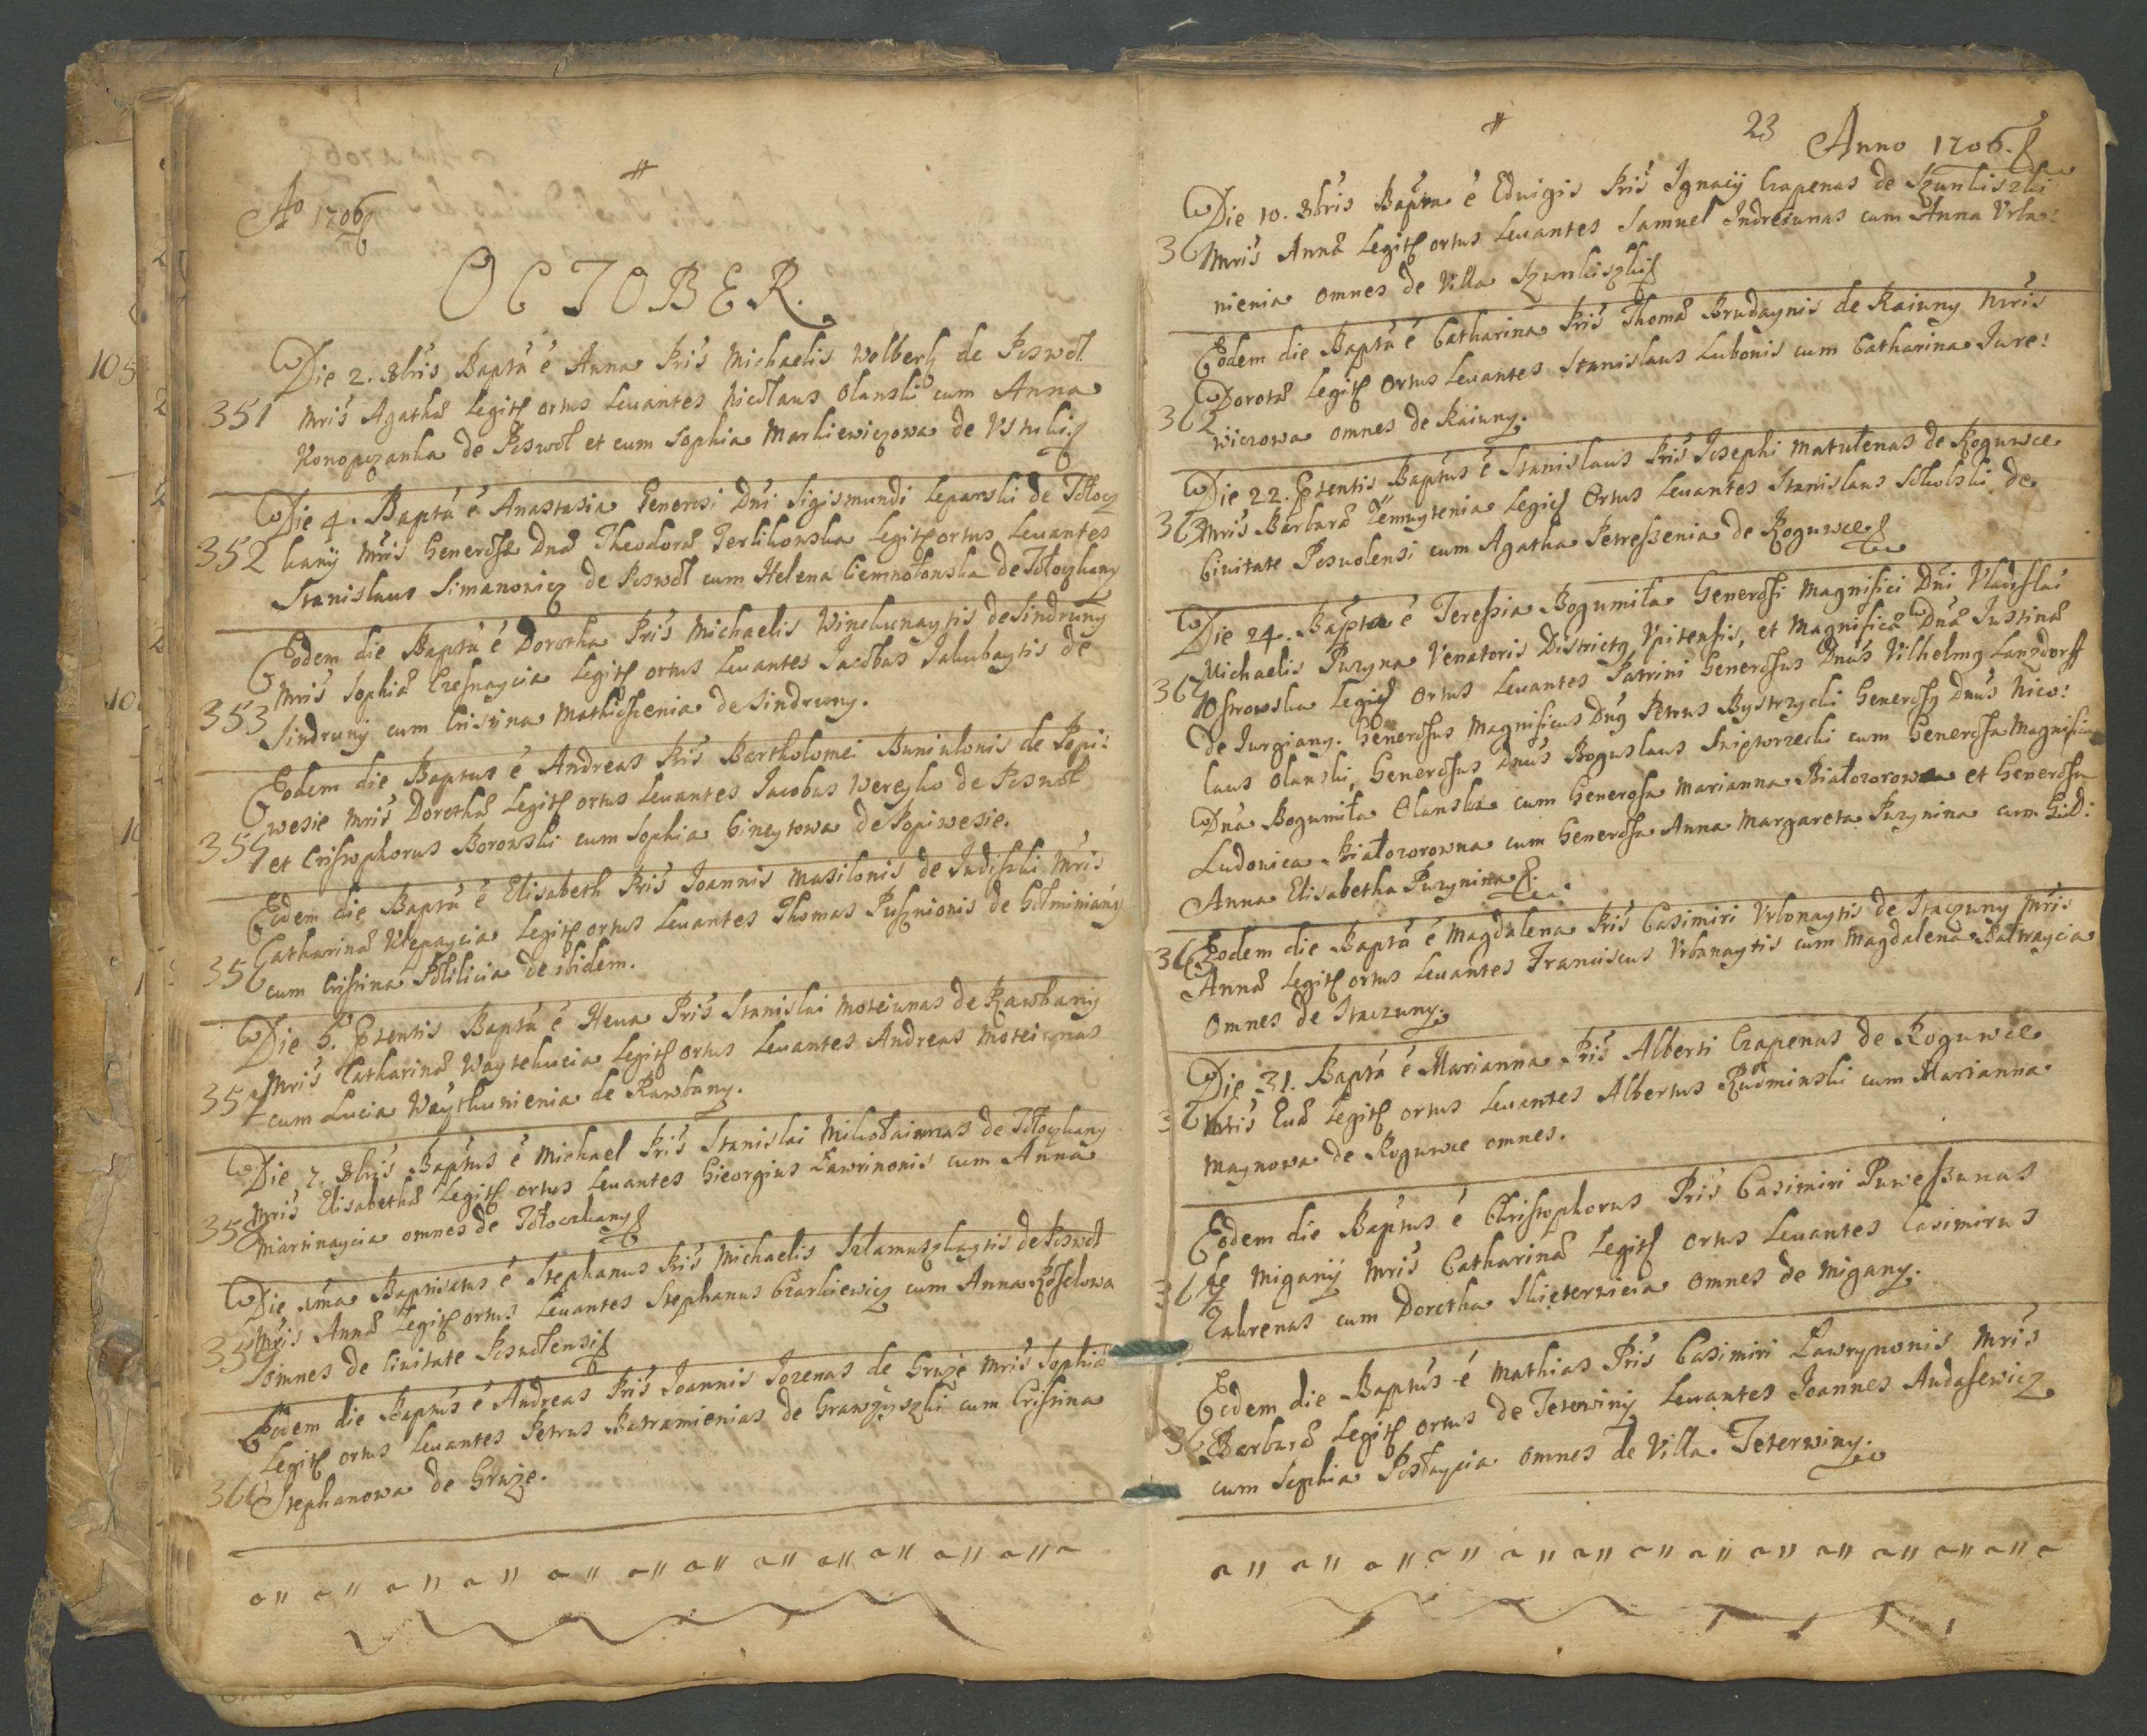 Aō 1706
OCTOBER.
Die 2. 8bris Baptá é Anna Pris Michaelis Wolberk de Poswol
351 Mris Agathæ Legit ortus Leuantes Nicolaus Olanski cum Anna
Konopczanka de Poswol et cum Sophia Markiewiczowa de Ustuki
Die 4. Baptá é Anastasia Generosi Dni Sigismundi Leparski de Tołocz
352 kany Mris Generosæ Dnæ Theodoræ Terlikowska Legit ortus Leuantes
Stanislaus Simanowicz de Poswol cum Helena Ciemnołonska de Tołoczkany
Eodem die Baptá é Dorotha Pris Michaelis Winckunaytis de Sindruny
Mris Sophiæ Czesnaycia Legit ortus Leuantes Jacobus Jakubaytis de
353 Sindruny cum Cristina Mathioszenia de Sindruny.
Eodem die Baptus é Andreas Pris Bartholomei Buniulonis de Popi:
wesie Mris Dorothæ Legit ortus Leuantes Jacobus Wereyko de Poswol
354 et Cristophorus Borowski cum Sophia Gineytowa de Popiwesie.
Eodem die Baptá é Elisabeth Pris Joannis Masilonis de Judiszki Mris
Catharinæ Klepaycia Legit ortus Leuantes Thomas Pusznionis de Golminiany
356 cum Cristina Polilicia de ibidem.
Die 6. Ptentis Baptá é Heua Pris Stanislai Moteiunas de Rawbany
Mris Catharinæ Waytekucia Legit ortus Leuantes Andreas Moteiunas
357 cum Lucia Waytkunienia de Rawbany.
Die 7. 8bris Baptus é Michael Pris Stanislai Mikołaiunas de Tołoczkany
Mris Elisabethæ Legit ortus Leuantes Gieorgius Ławrinonis cum Anna
358 Martinaycia omnes de Tołoczkany
Die Baptisatus é Stephanus Pris Michaelis Szlamuszkaytis de Poswol
Mris Annæ Legit ortus Leuantes Stephanus Czarkiewicz cum Anna Koszelowa
359 omnes de Ciuitate Posuolensi
Eodem die Baptus é Andreas Pris Joannis Jozenas de Gruże Mris Sophiæ
Legit ortus Leuantes Petrus Batramienias de Grawżyszki cum Cristina
360 Stephanowa de Gruże.
23 Anno 1706.
Die 10. 8bris Bapta é Eduigis Pris Ignacij Czapenas de Szunkiszki
36 Mris Annæ Legit ortus Leuantes Samuel Indreiunas cum Anna Urba:
nienia omnes de Villa Szunkiszki
Eodem die Baptá é Catharina Pris Thomæ Brudaynis de Raiuny Mris
Dorotæ Legit ortus Leuantes Stanislaus Lubonis cum Catharina Jure:
362 wiczowa omnes de Raiuny.
Die 22. Ptentis Baptus é Stanislaus Pris Josephi Matulenas de Roguwce
363 Mris Barbaræ Zemaytenia Legit Ortus Leuantes Stanislaus Sokolski de
Ciuitate Posuolensi cum Agatha Petreszenia de Roguwce
Die 24. Bapta é Teressia Bogumiła Generosi Magnifici Dni Uladislai
Michaelis Puzyna Venatoris Districtus Upitensis, et Magnificæ Dnæ Justinæ
36 Ostrowska Legit Ortus Leuantes Patrini Generosus Dnus Vilhelmus Lanzdorff
de Jurgiany. Generosus Magnificus Dnus Petrus Bystrzycki Generosus Dnus Nico:
laus Olanski, Generosus Dnus Boguslaus Swiętorzecki cum Generosa Magnifica
Dna Bogumiła Olanska cum Generosa Marianna Białozorowna et Generosa
Ludouica Białozorowna cum Generosa Anna Margareta Puzynina cum G:D:
Anna Elisabetha Puzynina.
36 Eodem die Baptá é Magdalena Pris Casimiri Urbonaytis de Staczuny Mris
Annæ Legit ortus Leuantes Franciscus Urbanaytis cum Magdalena Baltraycia
Omnes de Staczuny.
Die 31. Baptá é Marianna Pris Alberti Czapenas de Roguwce
36 Mris Euæ Legit ortus Leuantes Albertus Rudminski cum Marianna
Maynowa de Roguwce omnes.
Eodem die Baptus é Christophorus Pris Casimiri Puweszunas
367 de Migany Mris Catharinæ Legit ortus Leuantes Casimirus
Zakrenas cum Dorotha Skieterwicia omnes de Migany.
Eodem die Baptus é Mathias Pris Casimiri Ławrynonis Mris
36 Barbaræ Legit ortus de Teterwiny Leuantes Joannes Audasewicz
cum Sophia Posłaycia omnes de Villa Teterwiny.